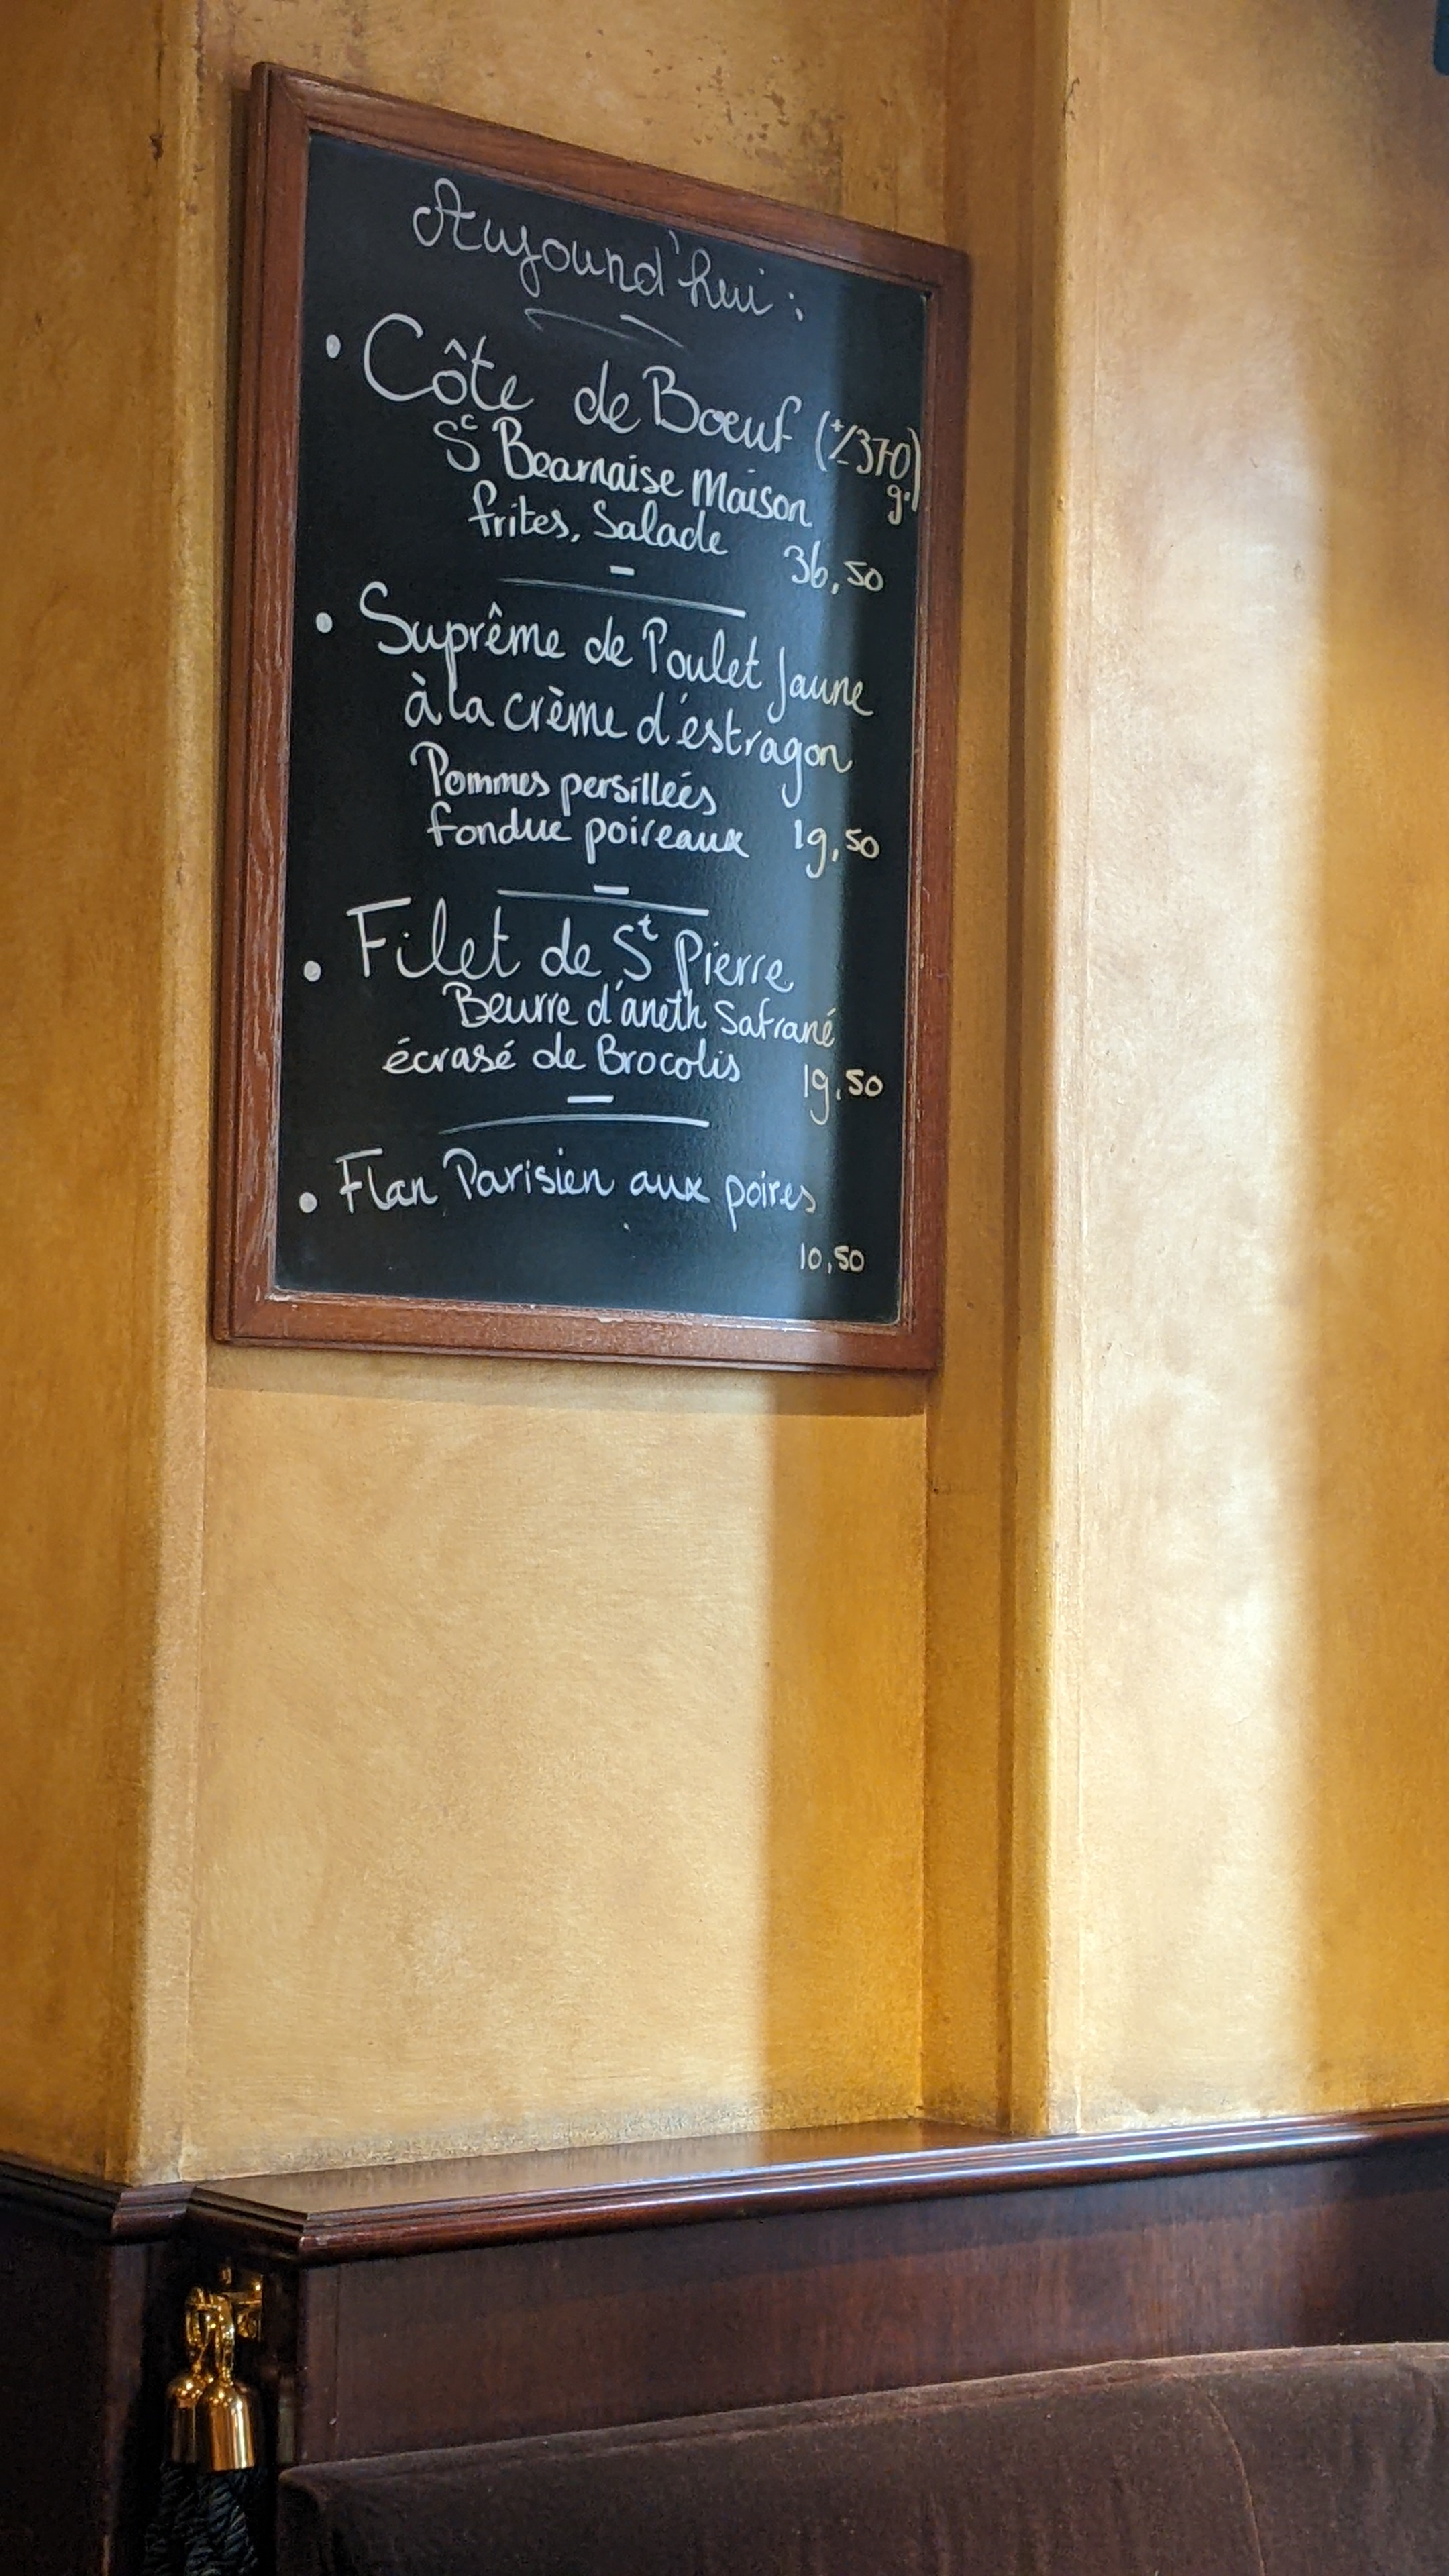 Aujourd'hui :
• Côte de Boeuf (+/-370)
Sc Bearnaise Maison g.
frites, Salade 36,50
• Suprême de Poulet Jaune
à la crème d'estragon
Pommes persillées
fondue poireaux 19,50
• Filet de St Pierre
Beurre d'aneth Safrané
écrasé de Brocolis 19,50
• Flan Parisien aux poires
10,50